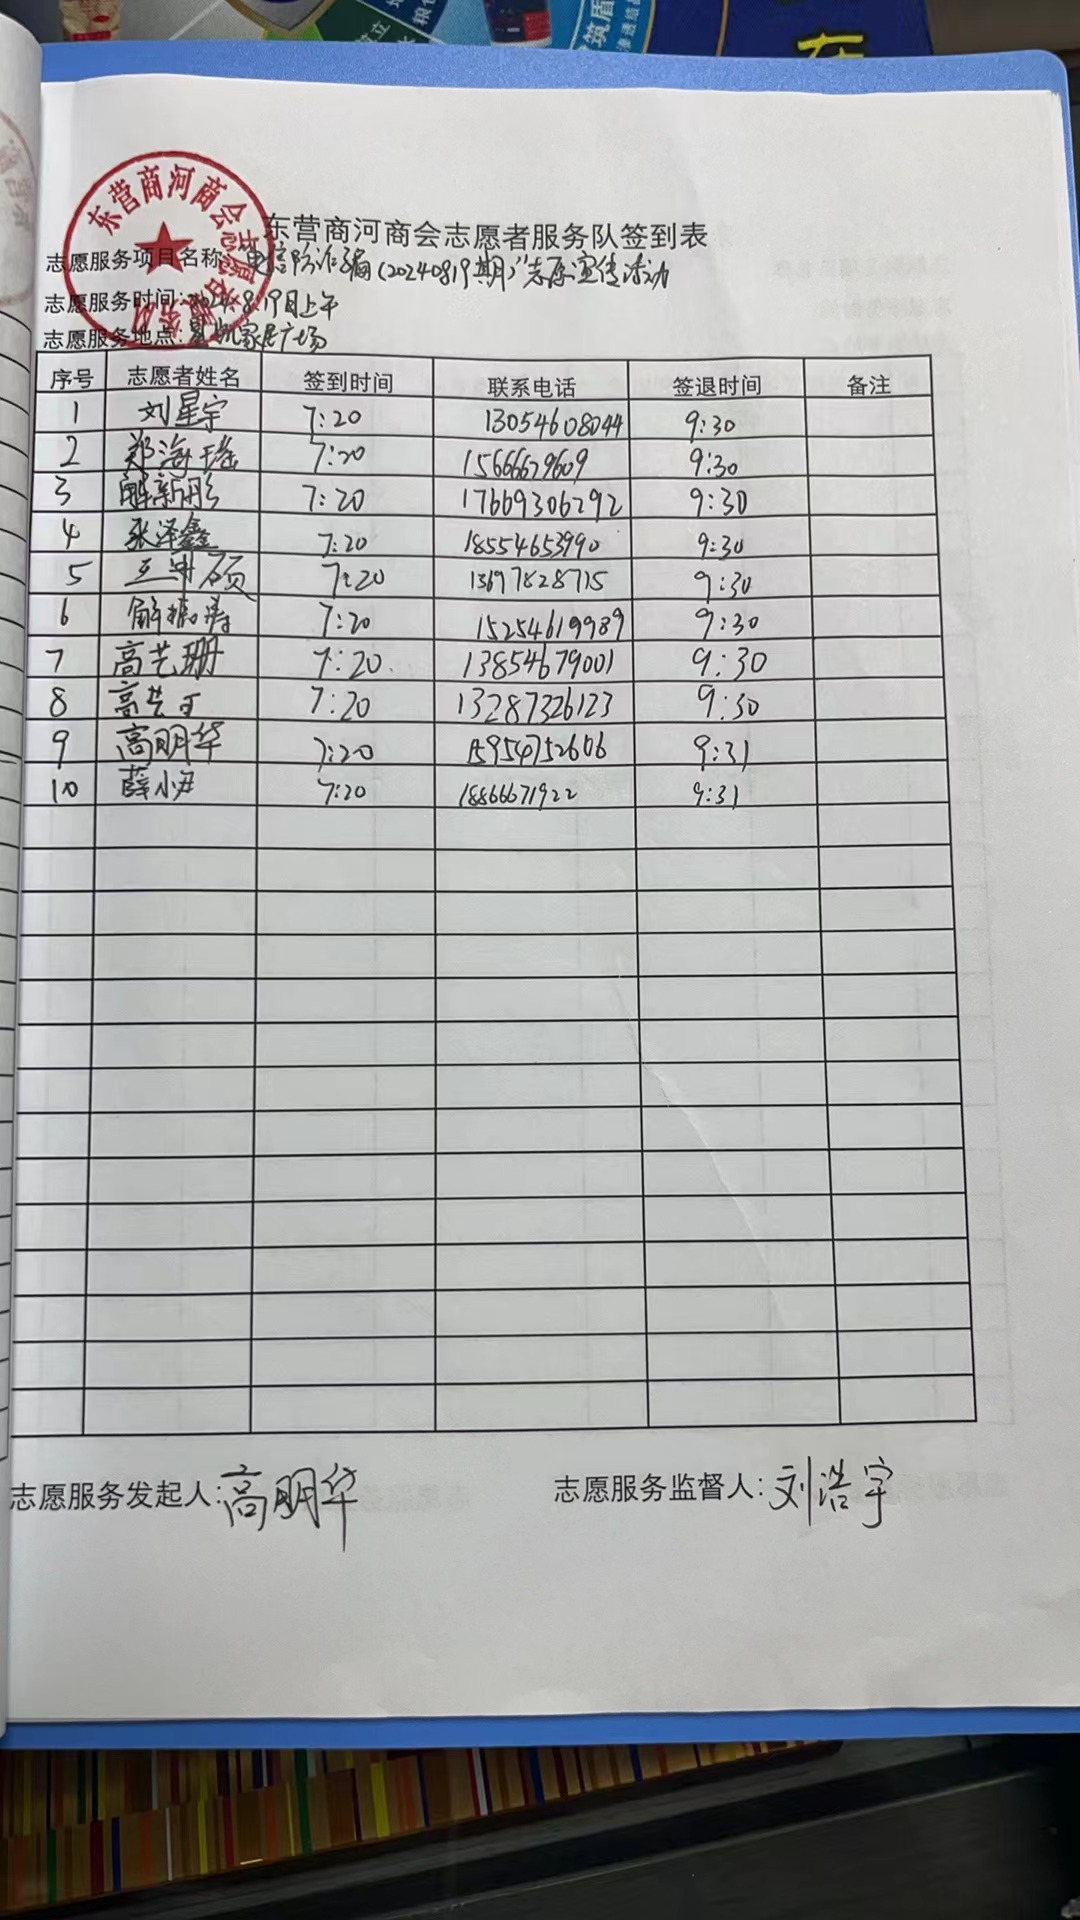 在
东营商河商会志愿者服务队
东营商河商会志愿者服务队签到表
志愿服务项目名称:"电信防诈骗(20240819期)"志愿宣传活动
志愿服务时间:2024.8.19日上午
志愿服务地点:家居广场
序号 志愿者姓名 签到时间 联系电话 签退时间 备注
1 刘星宇 7:20 13054608044 9:30
2 郑海瑶 7:20 15666629609 9:30
3 解新彤 7:20 17669306292 9:30
4 张泽鑫 7:20 18554653990 9:30
5 硕 7:20 13697828715 9:30
6 解 7:20 15254619989 9:30
7 高艺珊 7:20 13854679001 9:30
8 高艺 7:20 13287326123 9:30
9 高明华 7:20 15954752606 9:31
10 薛小丑 7:20 18866671922 9:31
志愿服务发起人:高明华 志愿服务监督人:刘浩宇